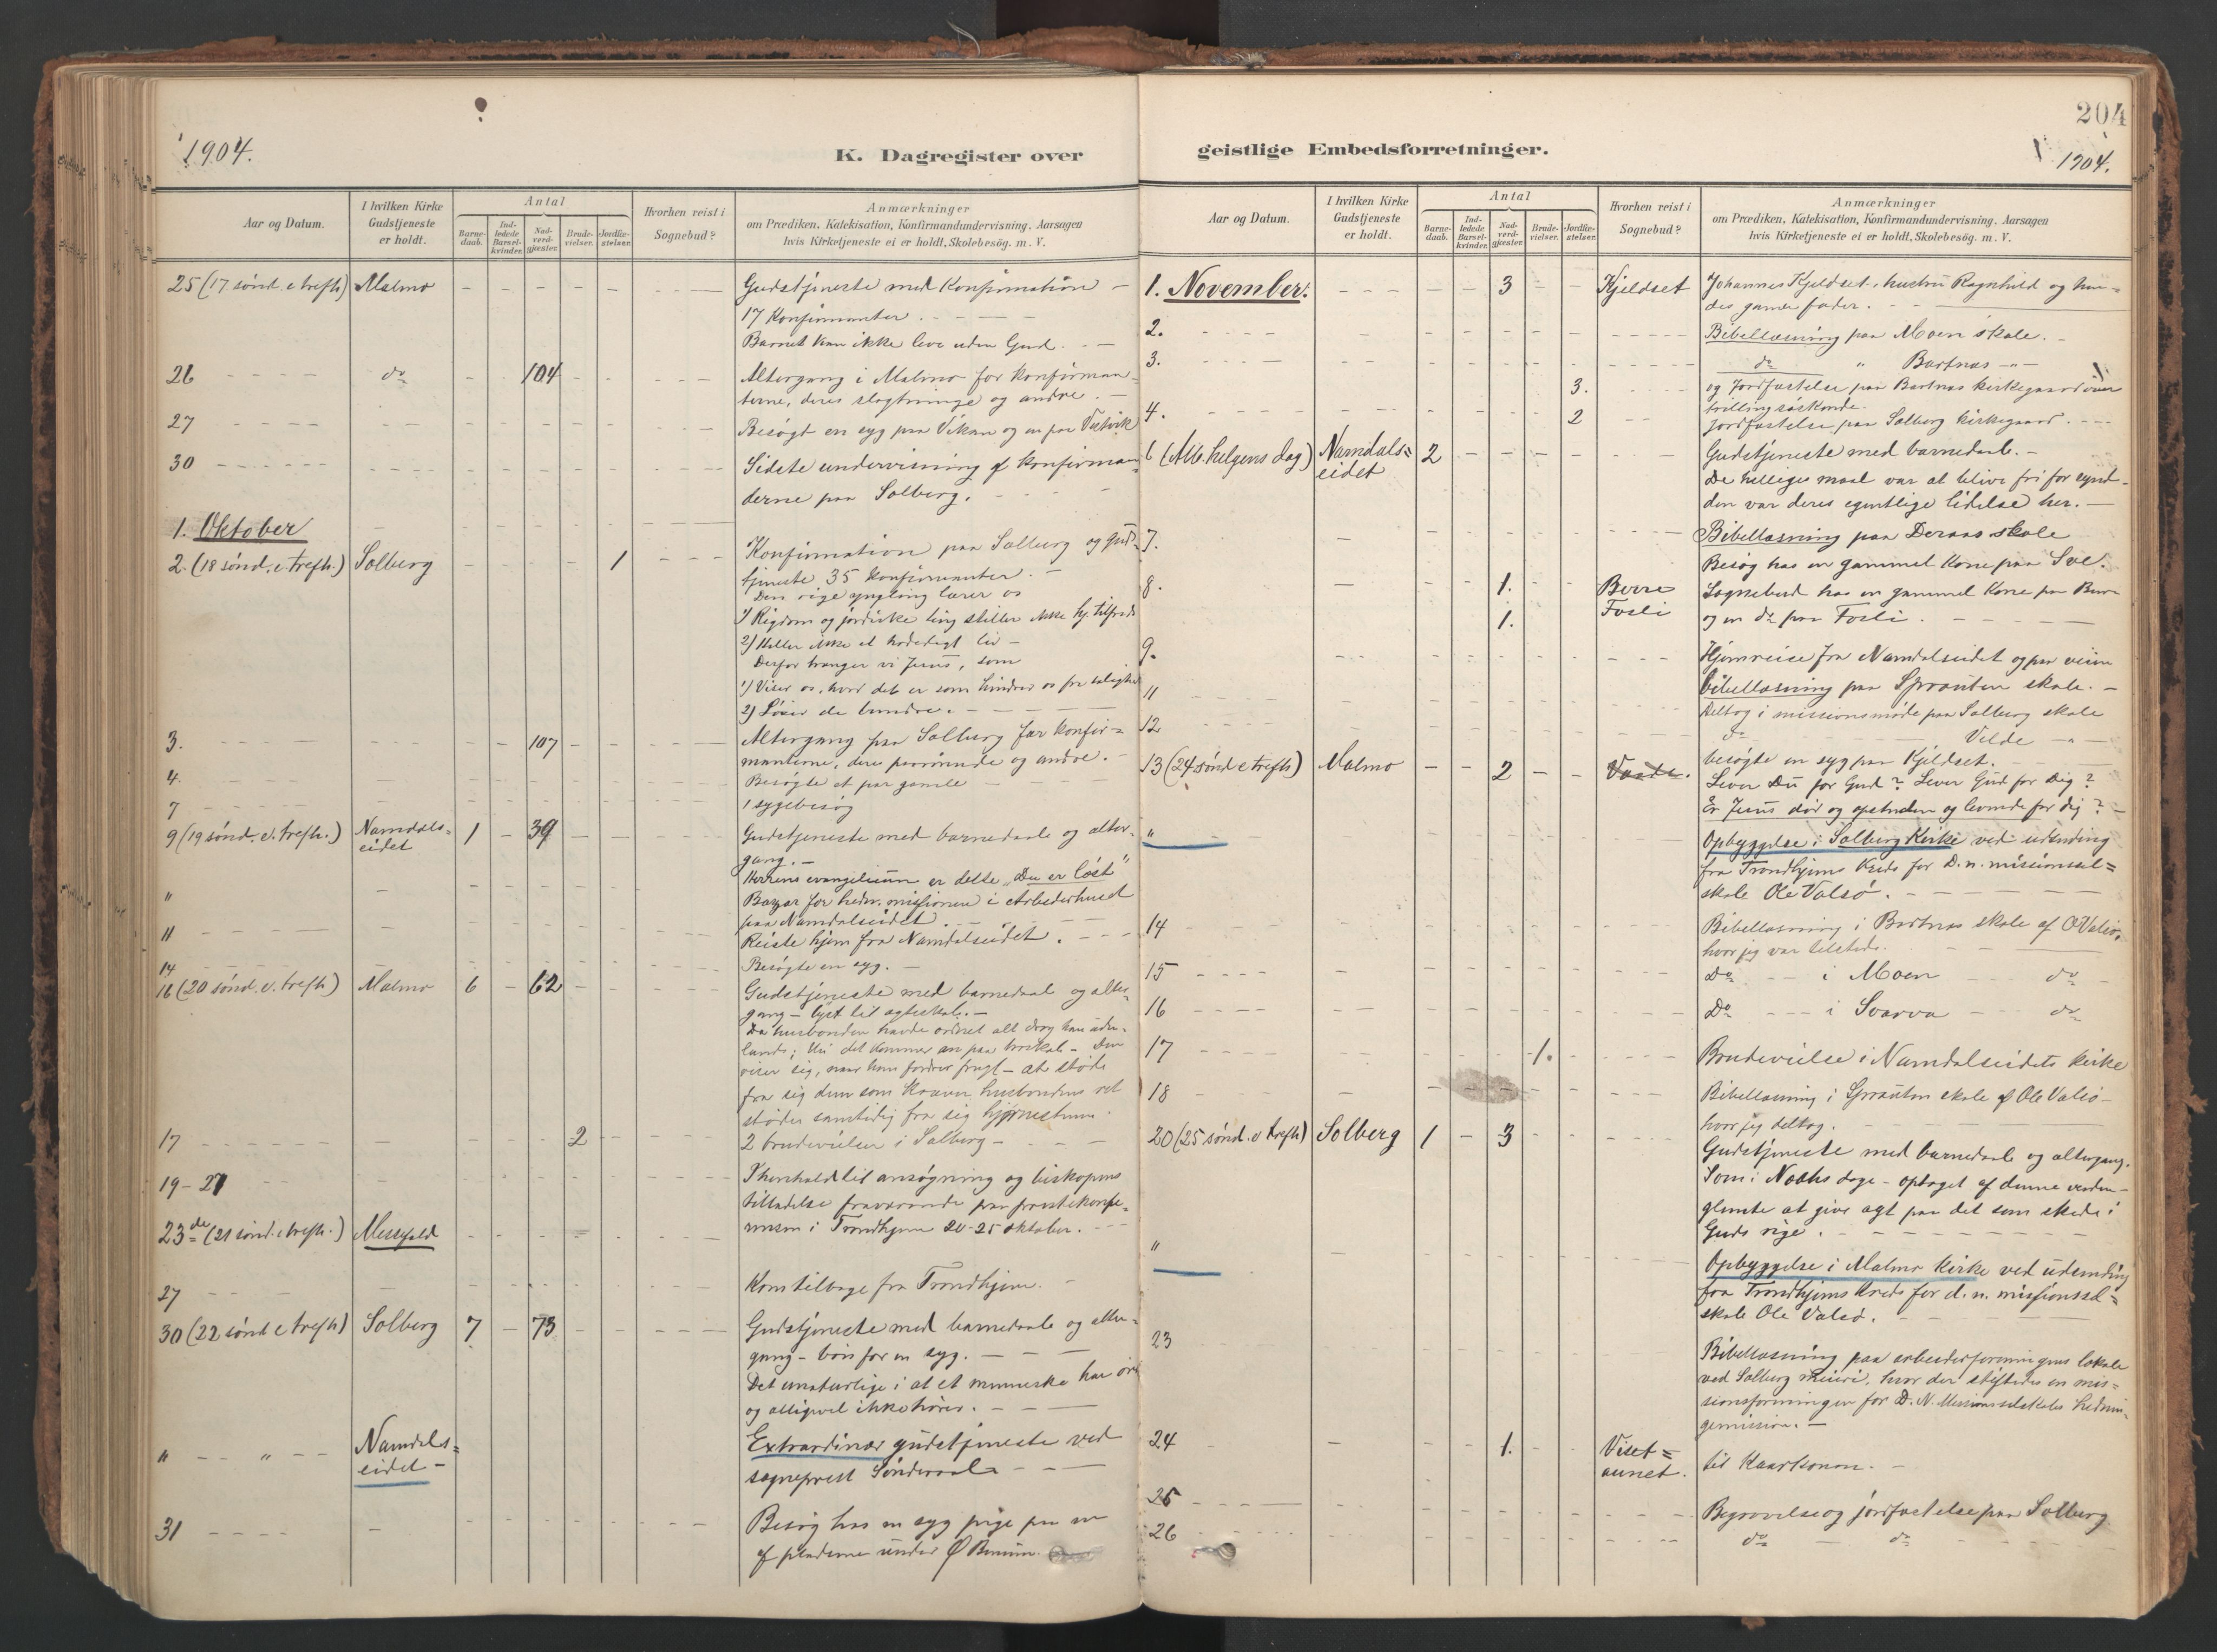 1904.
K. Dagregister over
Aar og Datum.
I hvilken Kirke
Gudstjeneste
er holdt.
Antal
Barne-
daab.
Ind-
ledede
Barsel-
kvinder.
Nad-
verd-
gjæster.
Brude-
vielser.
Jordfæ-
stelser.
Hvorhen reist i
Sognebud?
Anmærkninger
om Prædiken, Katekisation, Konfirmandundervisning, Aarsagen
hvis Kirketjeneste ei er holdt, Skolebesög. m. V.
25 (17 sønd. e trefh) Malmo Gudstjeneste med Konfirmation -
17 Konfirmanter.
Barnet kan ikke leve uden Gud.
26 do 104 Altergang i Malmo for konfirman-
terne, deres slægtninge og andre.
27 Besøgt en syg paa Vikan og en paa
30 Sidste undervisning af konfirman-
derne paa Solberg.
1. Oktober
2. (18 sønd. e. trefh.) Solberg 1 Konfirmation paa Solberg og guds-
tjeneste 35 konfirmanter.
Den rige yngling lærer os
1) Rigdom og jordiske ting stiller ikke hj. tilfreds
2) Heller ikke et liv -
Derfor trænger vi Jesus, som
1) Viser os, hvad det er som hindrer os fra salighed
2) Løser de bundne.
3. 107 Altergang paa Solberg for konfir-
manterne, dere paarørende og andre.
4. Besøgte et par gamle
7 1 sygebesøg
9 (19 sønd. e. trefh.) Namdals-
eidet 1 39 Gudstjeneste med barnedaab og alter-
gang. -
Herrens evangelium er dette „Du er løst"
" Bazar for hedn. missionen i Arbeiderhuset
paa Namdalseidet.
11 Reiste hjem fra Namdalseidet.
14 Besøgte en syg. -
16 (20 sønd. e. trefh) Malmo 6 62 Gudstjeneste med barnedaab og alter-
gang - lyst til ægteskab. -
Da husbonden havde ordnet alt drog han uden-
lands; det kommer an paa troskab - Den
viser sig, naar han fordrer frugt - at støde
fra sig dem som kræver husbondens ret
støder samtidig fra sig hjørnestenen.
17 2 2 brudevielser i Solberg -
19 - 27 I henhold til ansøgning og biskopens
tilladelse fraværende paa prestekonfe-
rensen i Trondhjem 20-25 oktober.
23de (21 sønd. e trefh.) Messefald
27 Kom tilbage fra Trondhjem.
30 (22 sønd e trefh) Solberg 7 73 Gudstjeneste med barnedaab og alter-
gang - bøn for en syg.
Det unaturlige i at et menneske har øre
og alligevel ikke hører.
" " Namdals-
eidet - Extraordinær gudstjeneste ved
sogneprest
31 Besøg hos en syg pige paa en
af pladsene under Ø
204
1904.
geistlige Embedsforretninger.
Aar og Datum.
I hvilken Kirke
Gudstjeneste
er holdt.
Antal
Barne-
daab.
Ind-
ledede
Barsel-
kvinder.
Nad-
verd-
gjæster.
Brude-
vielser.
Jordfæ-
stelser.
Hvorhen reist i
Sognebud?
Anmærkninger
om Prædiken, Katekisation, Konfirmandundervisning, Aarsagen
hvis Kirketjeneste ei er holdt, Skolebesög. m. V.
1. November. 3 Kjeldset Johannes Kjeldset, hustru Ragnhild og hen-
des gamle fader.
2. Bibellæsning paa Moen skole.
3. do " Bartnæs -"-
3. og Jordfæstelse paa Bartnæs kirkegaard over
trillingsøskende.
4. 2 Jordfæstelse paa Solberg kirkegaard.
6 (Alle helgens dag) Namdals-
eidet 2 Gudstjeneste med barnedaab. -
De helliges maal var at blive fri for synd-
den var deres egentlige lidelse her. -
7. Bibellæsning paa Deraas skole
Besøg hos en gammel kone paa
8. 1. Berre Sognebud hos en gammel kone paa
1. Fosli og en do paa Fosli.
9. Hjemreise fra Namdalseidet og paa veien
bibellæsning paa Sprauten skole. -
11 Deltog i missionsmøde paa Solberg skole
12 do Velde -"-
besøgte en syg paa Kjeldset.
13 (24 sønd e trefh) Malmo 2 Lever Du for Gud? Lever Gud for Dig?
Er Jesus død og opstanden og levende for dig?
" Opbyggelse i Solberg Kirke ved udsending
fra Trondhjems Kreds for D. n. missionssel-
skab Ole Valsø.
14 Bibellæsning i Bartnæs skole af O Valsø,
hvor jeg var tilstede.
15 Do i Moen do
16 Do i Svarva do
17 1. Brudevielse i Namdalseidets kirke
18 Bibellæsning i Sprauten skole af Ole Valsø -
hvor jeg deltog.
20 (25 sønd. e trefh) Solberg 1 3 Gudstjeneste med barnedaab og altergang.
Som i Noahs dage - optaget af denne verden -
glemte at give agt paa det som skede i
Guds rige.
" Opbyggelse i Malmo kirke ved udsending
fra Trondhjems kreds for d. n. missionssel-
skab Ole Valsø.
23 Bibellæsning paa arbeiderforeningens lokale
ved Solberg meieri, hvor der stiftedes en mis-
sionsforeningen for D. N. Missionsselskabs hednin-
gemission. -
24 1. Viset-
aunet. til
25 Begravelse og jordfæstelse paa Solberg.
26 do do